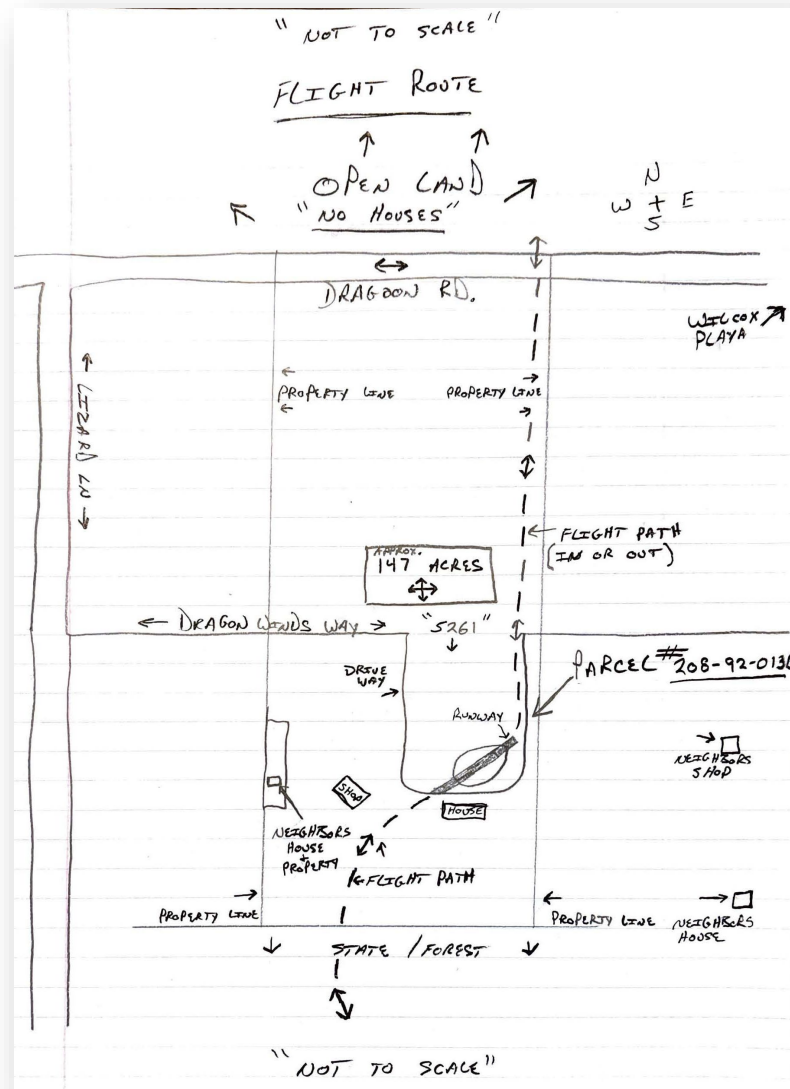 "NOT TO SCALE"
FLIGHT ROUTE
OPEN LAND
"NO HOUSES"
N
W + E
S
DRAGOON RD.
WILCOX
PLAYA
LIZARD LN
PROPERTY LINE
PROPERTY LINE
FLIGHT PATH
(IN OR OUT)
APPROX.
147 ACRES
DRAGON WINDS WAY
"5261"
DRIVE
WAY
PARCEL # 208-92-013
RUNWAY
NEIGHBORS
SHOP
SHOP
HOUSE
NEIGHBORS
HOUSE
+
PROPERTY
FLIGHT PATH
PROPERTY LINE
PROPERTY LINE
NEIGHBORS
HOUSE
STATE / FOREST
"NOT TO SCALE"